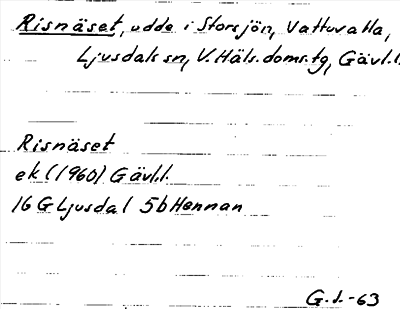 Risnäset, udde i Storsjön, Vattuvalla,
Ljusdals sn, V. Häls. doms.tg, Gävl.l.
Risnäset
ek (1960) Gävl.l.
16 G Ljusdal 5b Hennan
G.I.-63